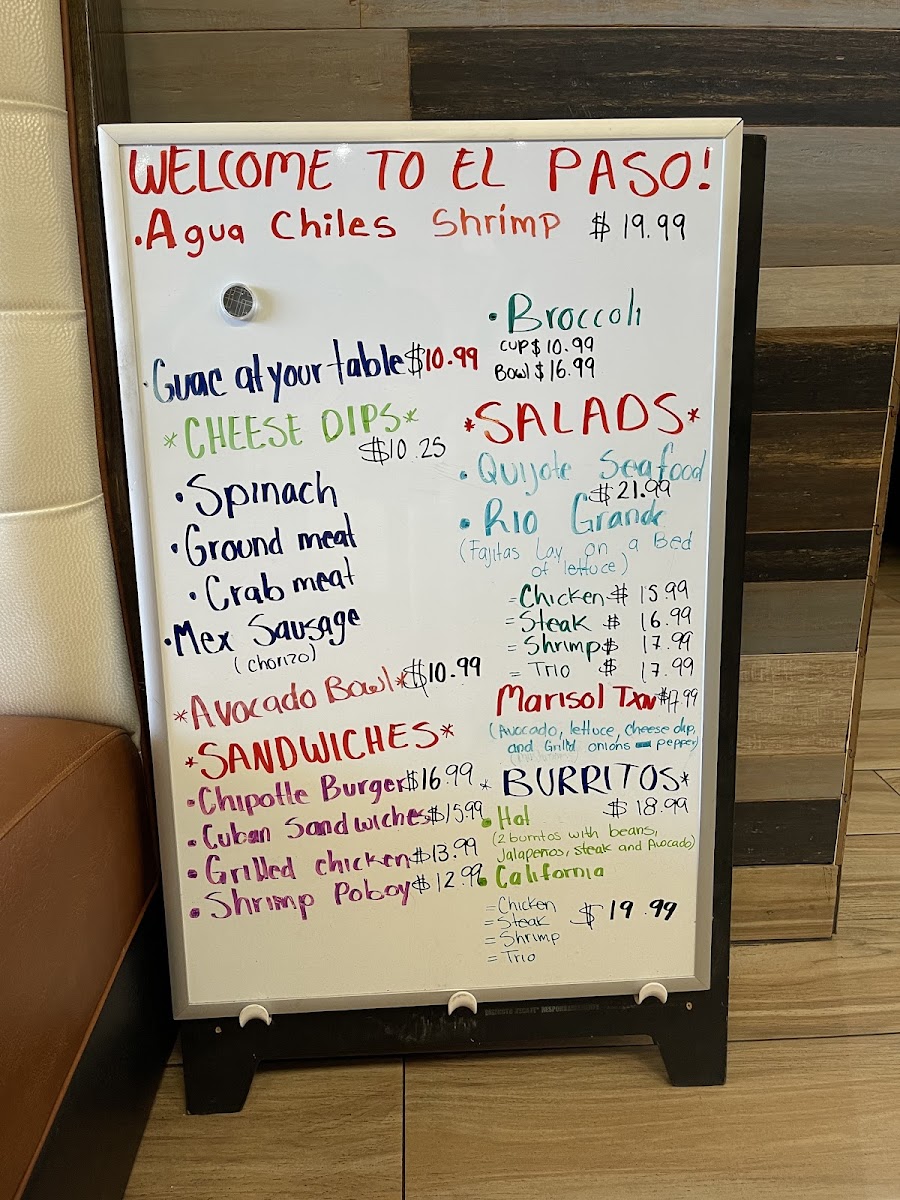 WELCOME TO EL PASO!
•Agua Chiles Shrimp $19.99
•Guac at your table $10.99
*CHEESE DIPS*
$10.25
•Spinach
•Ground meat
•Crab meat
•Mex Sausage
(chorizo)
*Avocado Bowl* $10.99
*SANDWICHES*
•Chipotle Burger $16.99
•Cuban Sandwiches $15.99
•Grilled chicken $13.99
•Shrimp Poboy $12.99
•Broccoli
CUP $10.99
Bowl $16.99
*SALADS*
•Quijote Seafood
$21.99
•Rio Grande
(Fajitas Lay on a Bed
of lettuce)
=Chicken $15.99
=Steak $16.99
=Shrimp $17.99
=Trio $17.99
Marisol Txn $17.99
(Avocado, lettuce, cheese dip,
and Grilld onions pepper)
*BURRITOS*
$18.99
•Hot
(2 burritos with beans,
Jalapeños, steak and Avocado)
•California
=Chicken
=Steak $19.99
=Shrimp
=Trio